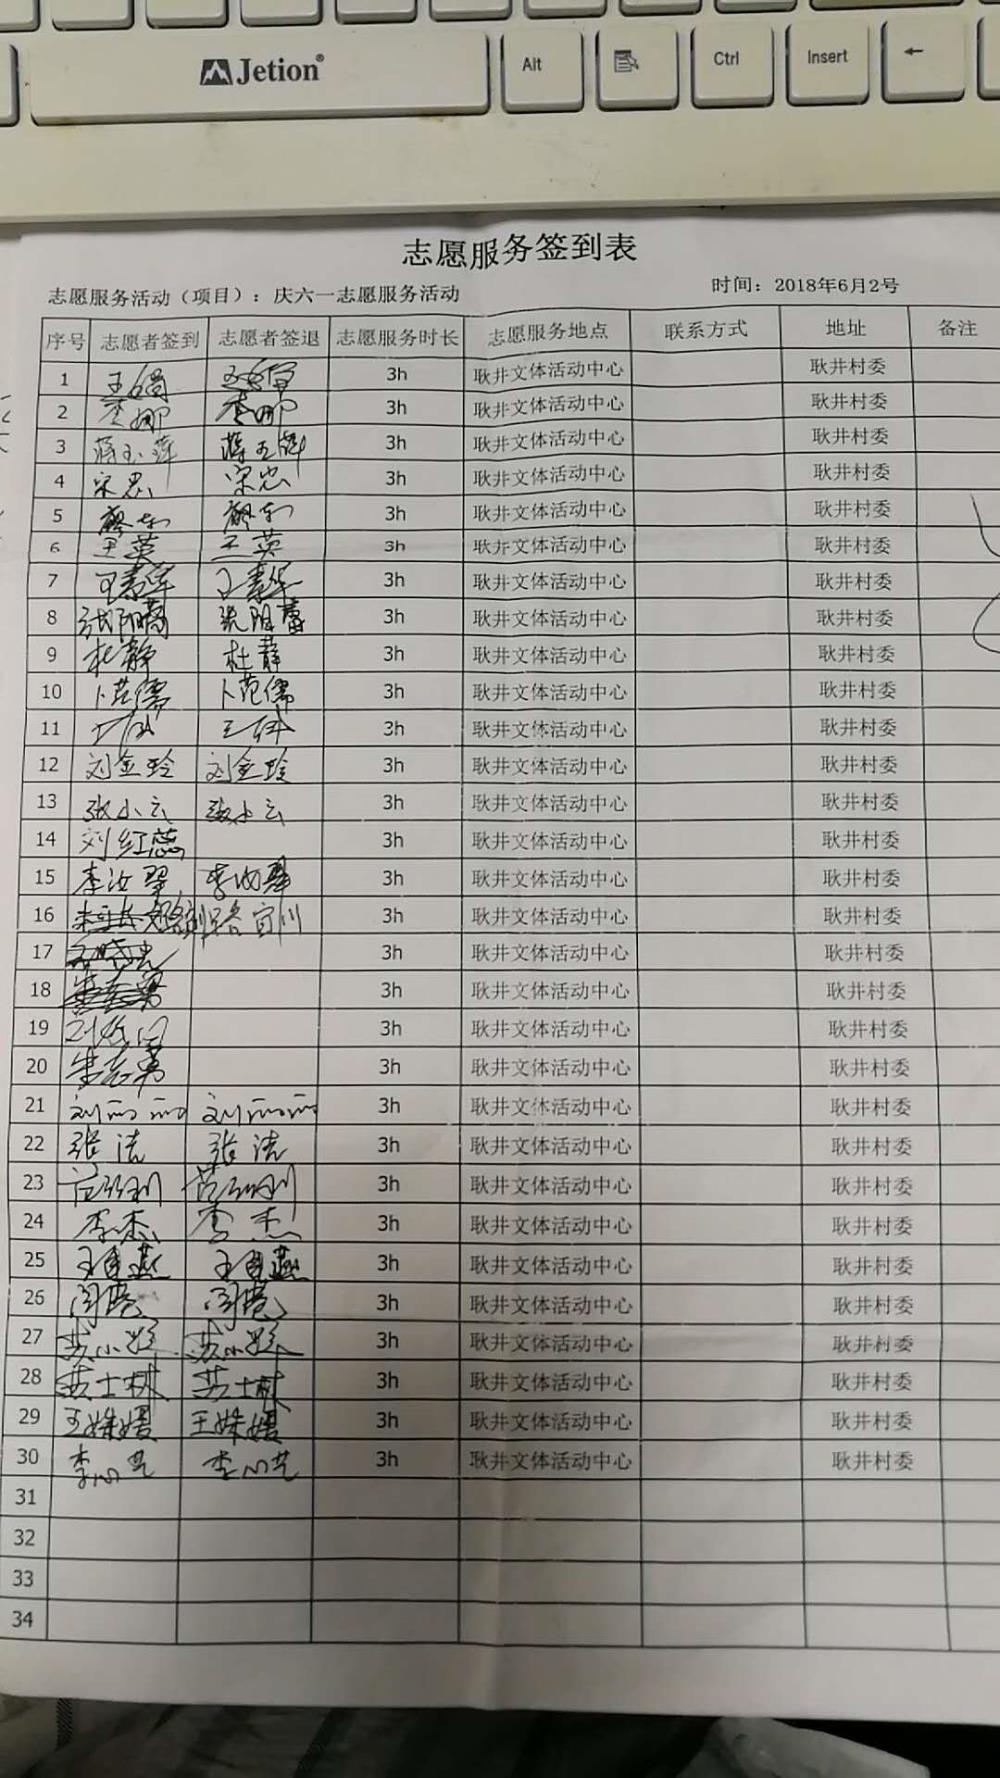 Jetion®
Alt
Ctrl
Insert
←
志愿服务签到表
志愿服务活动（项目）：庆六一志愿服务活动 时间：2018年6月2号
序号 志愿者签到 志愿者签退 志愿服务时长 志愿服务地点 联系方式 地址 备注
1 3h 耿井文体活动中心 耿井村委
2 李娜 李娜 3h 耿井文体活动中心 耿井村委
3 蒋玉萍 蒋玉萍 3h 耿井文体活动中心 耿井村委
4 宋忠 宋忠 3h 耿井文体活动中心 耿井村委
5 3h 耿井文体活动中心 耿井村委
6 王英 王英 3h 耿井文体活动中心 耿井村委
7 王素华 王素华 3h 耿井文体活动中心 耿井村委
8 3h 耿井文体活动中心 耿井村委
9 杜静 杜静 3h 耿井文体活动中心 耿井村委
10 卜范儒 卜范儒 3h 耿井文体活动中心 耿井村委
11 3h 耿井文体活动中心 耿井村委
12 刘金玲 刘金玲 3h 耿井文体活动中心 耿井村委
13 张小云 张小云 3h 耿井文体活动中心 耿井村委
14 刘红蕊 3h 耿井文体活动中心 耿井村委
15 李汝翠 李汝翠 3h 耿井文体活动中心 耿井村委
16 3h 耿井文体活动中心 耿井村委
17 3h 耿井文体活动中心 耿井村委
18 3h 耿井文体活动中心 耿井村委
19 3h 耿井文体活动中心 耿井村委
20 3h 耿井文体活动中心 耿井村委
21 刘丽丽 刘丽丽 3h 耿井文体活动中心 耿井村委
22 张洁 张洁 3h 耿井文体活动中心 耿井村委
23 3h 耿井文体活动中心 耿井村委
24 李杰 李杰 3h 耿井文体活动中心 耿井村委
25 3h 耿井文体活动中心 耿井村委
26 3h 耿井文体活动中心 耿井村委
27 3h 耿井文体活动中心 耿井村委
28 3h 耿井文体活动中心 耿井村委
29 王姝媛 王姝媛 3h 耿井文体活动中心 耿井村委
30 李心艺 李心艺 3h 耿井文体活动中心 耿井村委
31
32
33
34